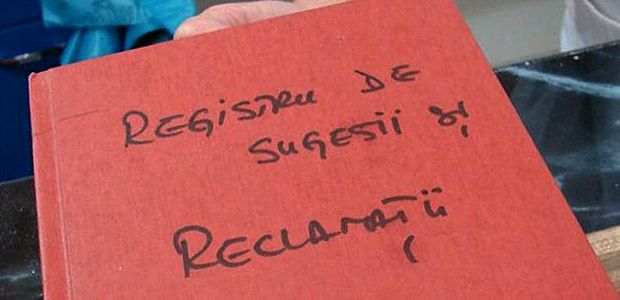 REGISTRU DE
SUGESTII și
RECLAMAȚII